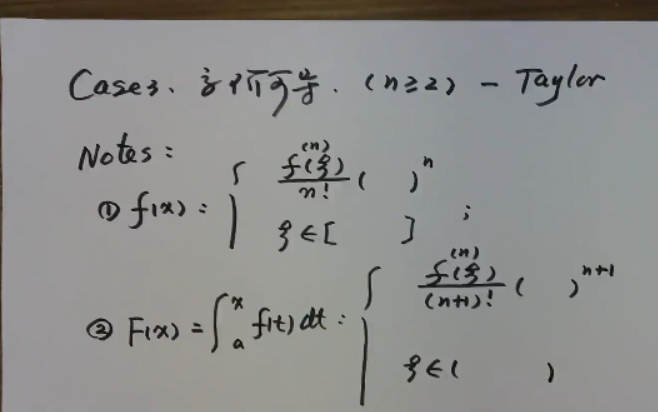 Case3. 高阶可导. (n≥2) - Taylor
Notes:
① f(x): { f⁽ⁿ⁾(ξ)/n! (   )ⁿ
ξ∈[   ] ;
② F(x) = ∫ₐˣ f(t)dt: { f⁽ⁿ⁾(ξ)/(n+1)! (   )ⁿ⁺¹
ξ∈(   )